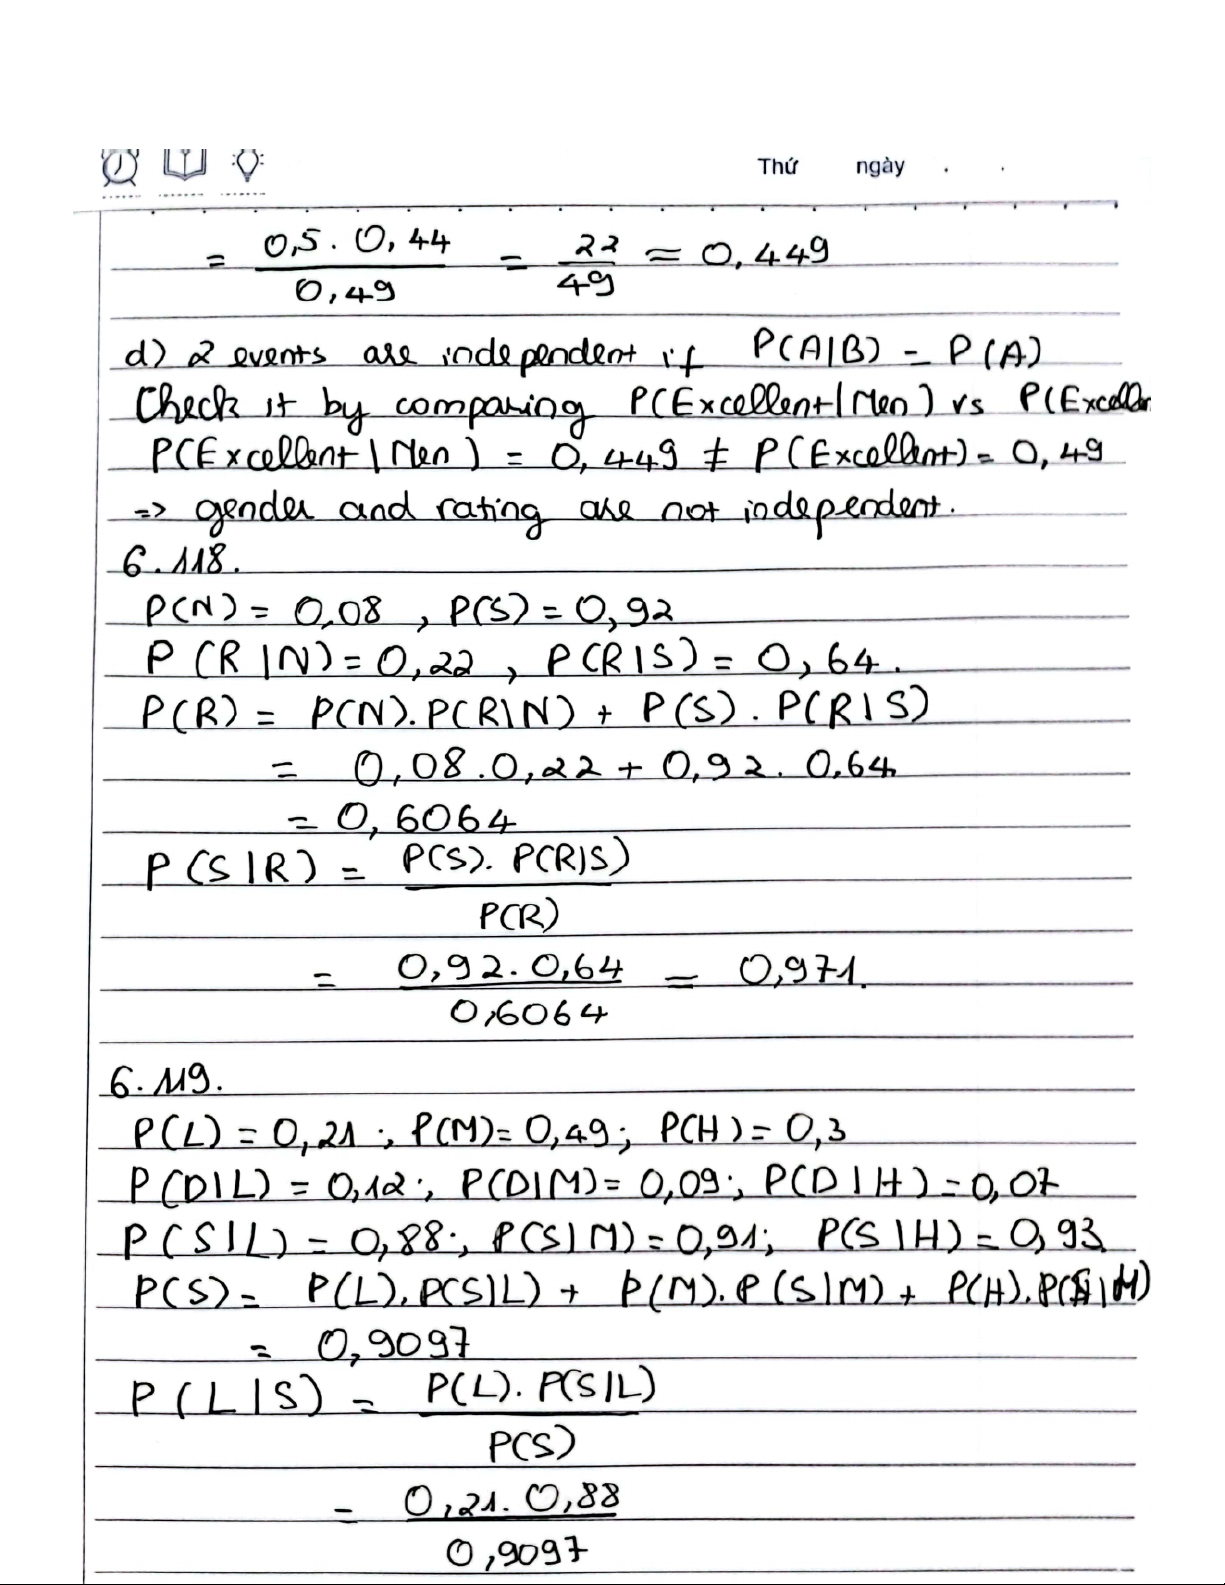 Thứ ngày . .
= 0,5 . 0,44 / 0,49 = 22 / 49 ≈ 0,449
d) 2 events are independent if P(A|B) = P(A)
Check it by comparing P(Excellent|Men) vs P(Excellen
P(Excellent|Men) = 0,449 ≠ P(Excellent) = 0,49
=> gender and rating are not independent.
6.118.
P(N) = 0,08 , P(S) = 0,92
P(R|N) = 0,22 , P(R|S) = 0,64.
P(R) = P(N).P(R|N) + P(S).P(R|S)
= 0,08.0,22 + 0,92.0,64
= 0,6064
P(S|R) = P(S).P(R|S) / P(R)
= 0,92.0,64 / 0,6064 = 0,971.
6.119.
P(L) = 0,21 ; P(M) = 0,49 ; P(H) = 0,3
P(D|L) = 0,12 ; P(D|M) = 0,09 ; P(D|H) = 0,07
P(S|L) = 0,88 ; P(S|M) = 0,91 ; P(S|H) = 0,93
P(S) = P(L).P(S|L) + P(M).P(S|M) + P(H).P(S|H)
= 0,9097
P(L|S) = P(L).P(S|L) / P(S)
= 0,21.0,88 / 0,9097